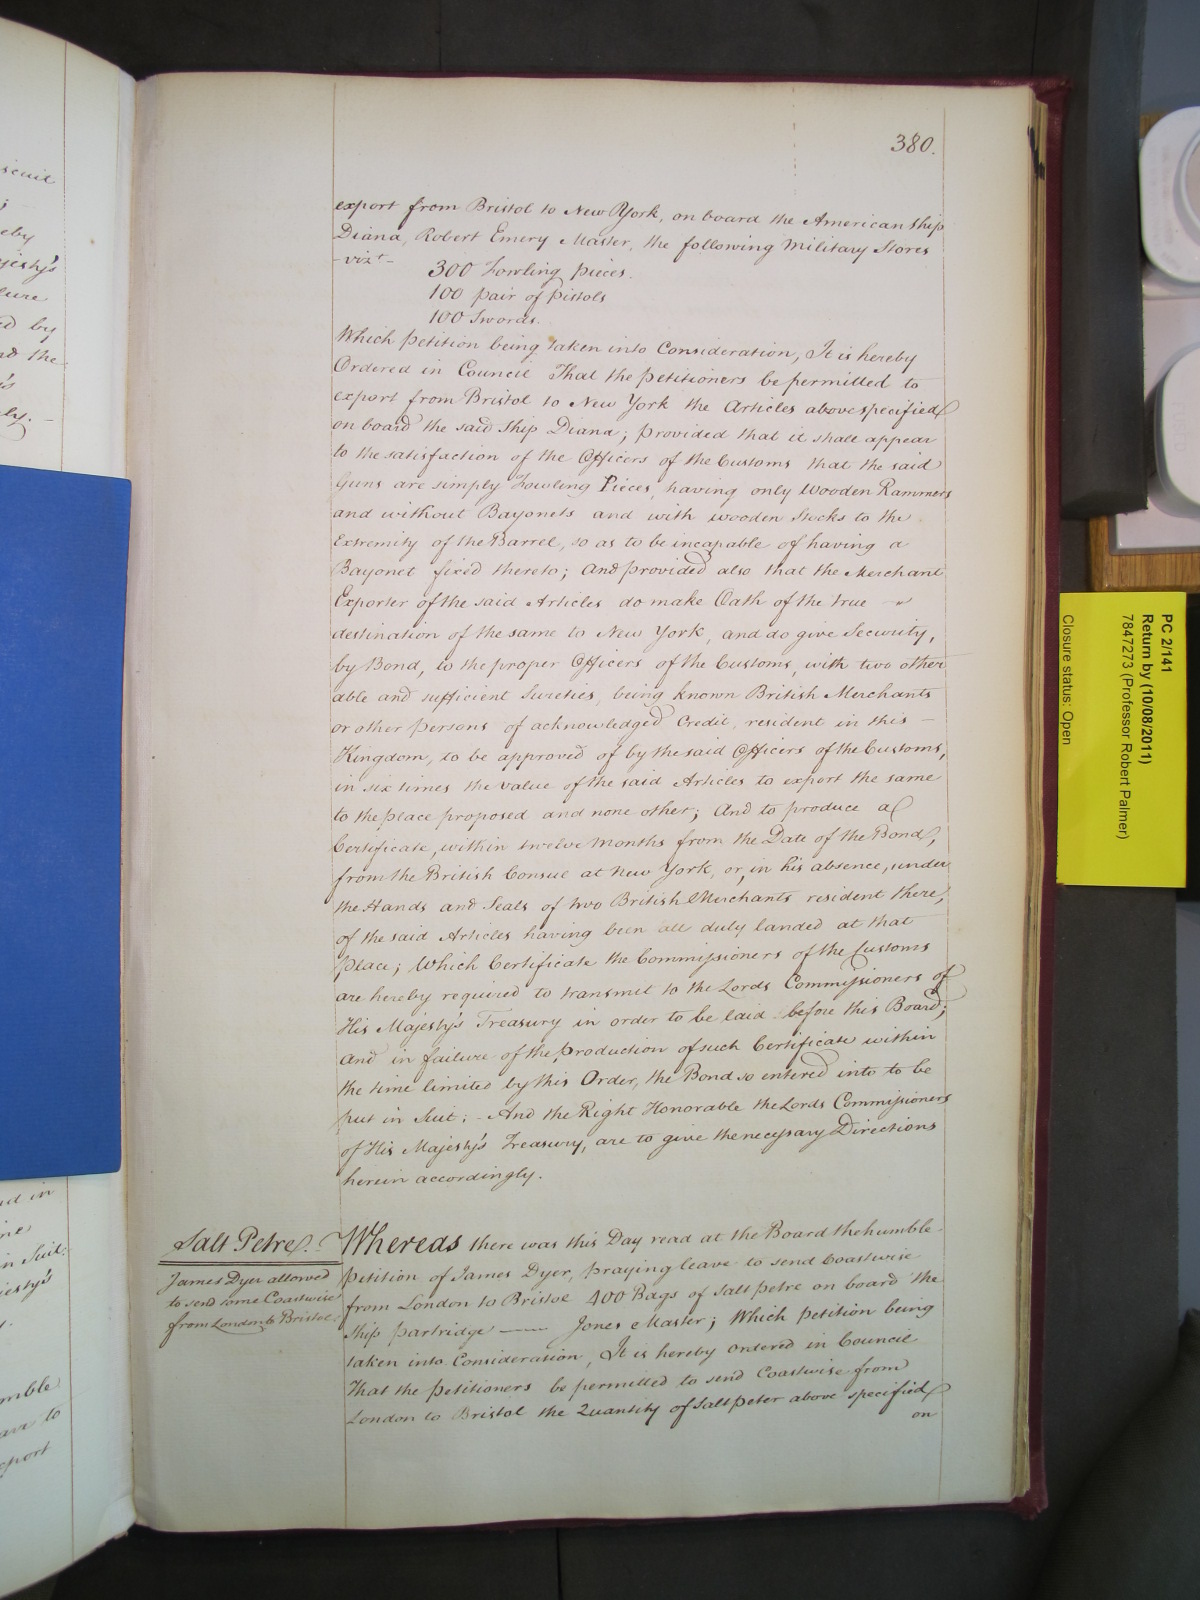 380.
export from Bristol to New York, on board the American Ship
Diana, Robert Emery Master, the following Military Stores
-vizt-
300 Fowling pieces.
100 pair of Pistols
100 Swords.
Which Petition being taken into Consideration, It is hereby
Ordered in Council That the Petitioners be permitted to
export from Bristol to New York the Articles above specified
on board the said Ship Diana; provided that it shall appear
to the satisfaction of the Officers of the Customs that the said
Guns are simply Fowling Pieces, having only Wooden Rammers
and without Bayonets and with wooden Stocks to the
Extremity of the Barrel, so as to be incapable of having a
Bayonet fixed thereto; And provided also that the Merchant
Exporter of the said Articles do make Oath of the true
destination of the same to New York, and do give Security,
by Bond, to the proper Officers of the Customs, with two other
able and sufficient Sureties, being known British Merchants
or other Persons of acknowledged Credit, resident in this -
Kingdom, to be approved of by the said Officers of the Customs,
in six times the value of the said Articles to export the same
to the place proposed and none other; And to produce a
Certificate, within twelve Months from the Date of the Bond,
from the British Consul at New York, or, in his absence, under
the Hands and Seals of two British Merchants resident there,
of the said Articles having been all duly landed at that
Place; Which Certificate the Commissioners of the Customs
are hereby required to transmit to the Lords Commissioners of
His Majesty's Treasury in order to be laid before this Board;
And in failure of the production of such Certificate within
the time limited by this Order, the Bond so entered into to be
put in Suit; - And the Right Honorable the Lords Commissioners
of His Majesty's Treasury, are to give the necessary Directions
herein accordingly.
Salt Petre.
James Dyer allowed
to send some Coastwise
from London to Bristol.
Whereas there was this Day read at the Board the humble
Petition of James Dyer, praying leave to send Coastwise
from London to Bristol 400 Bags of Salt petre on board the
Ship Partridge —— Jones Master; Which Petition being
taken into Consideration, It is hereby ordered in Council
That the Petitioners be permitted to send Coastwise from
London to Bristol the Quantity of Salt peter above specified
on
PC 2/141
Return by (10/08/2011)
7847273 (Professor Robert Palmer)
Closure status: Open
eby
jesty's
lure
ed by
and the
ly. -
in Suit:
jesty's
umble
port